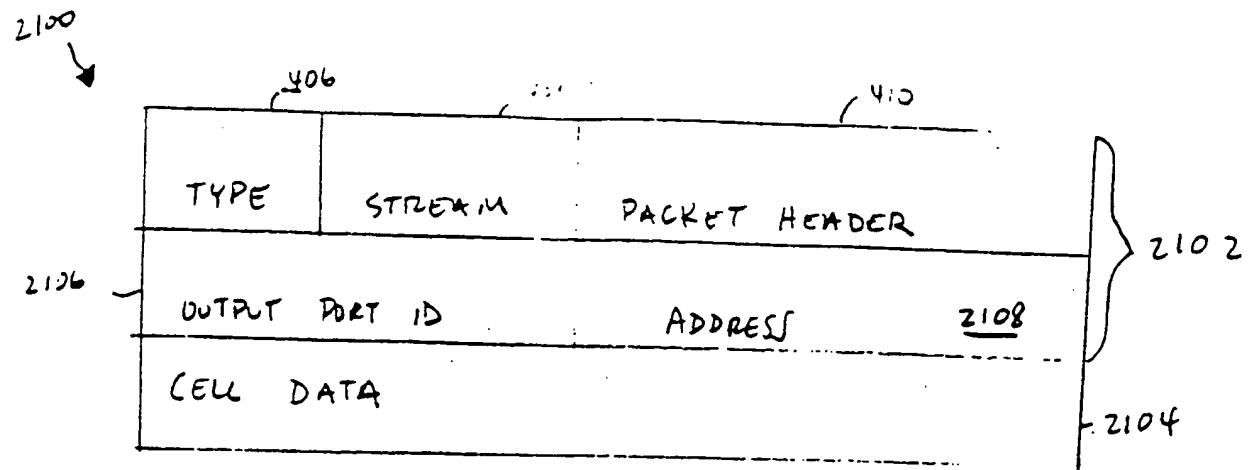 2100
406 410
TYPE STREAM PACKET HEADER
2102
2106
OUTPUT PORT ID ADDRESS 2108
CELL DATA
2104